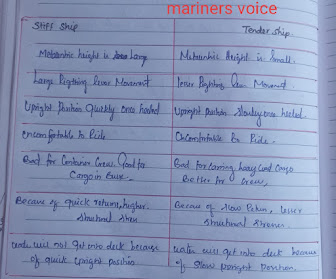 mariners voice
Stiff Ship Tender ship
Metacentric height is Large Metacentric Height is Small.
Large Righting lever Movement lesser Righting lever Movement
Upright Position Quickly once heeled Upright position Slowly once heeled.
Uncomfortable to Ride Comfortable to Ride.
Bad for Container Crew. Good for Good for Carrying heavy Cargo
Cargo in Better for Crew,
Because of quick return, higher Because of slow Return, lesser
structural stress structural stresses.
water will not get into deck because water will get into deck because
of quick upright position of slow upright position.